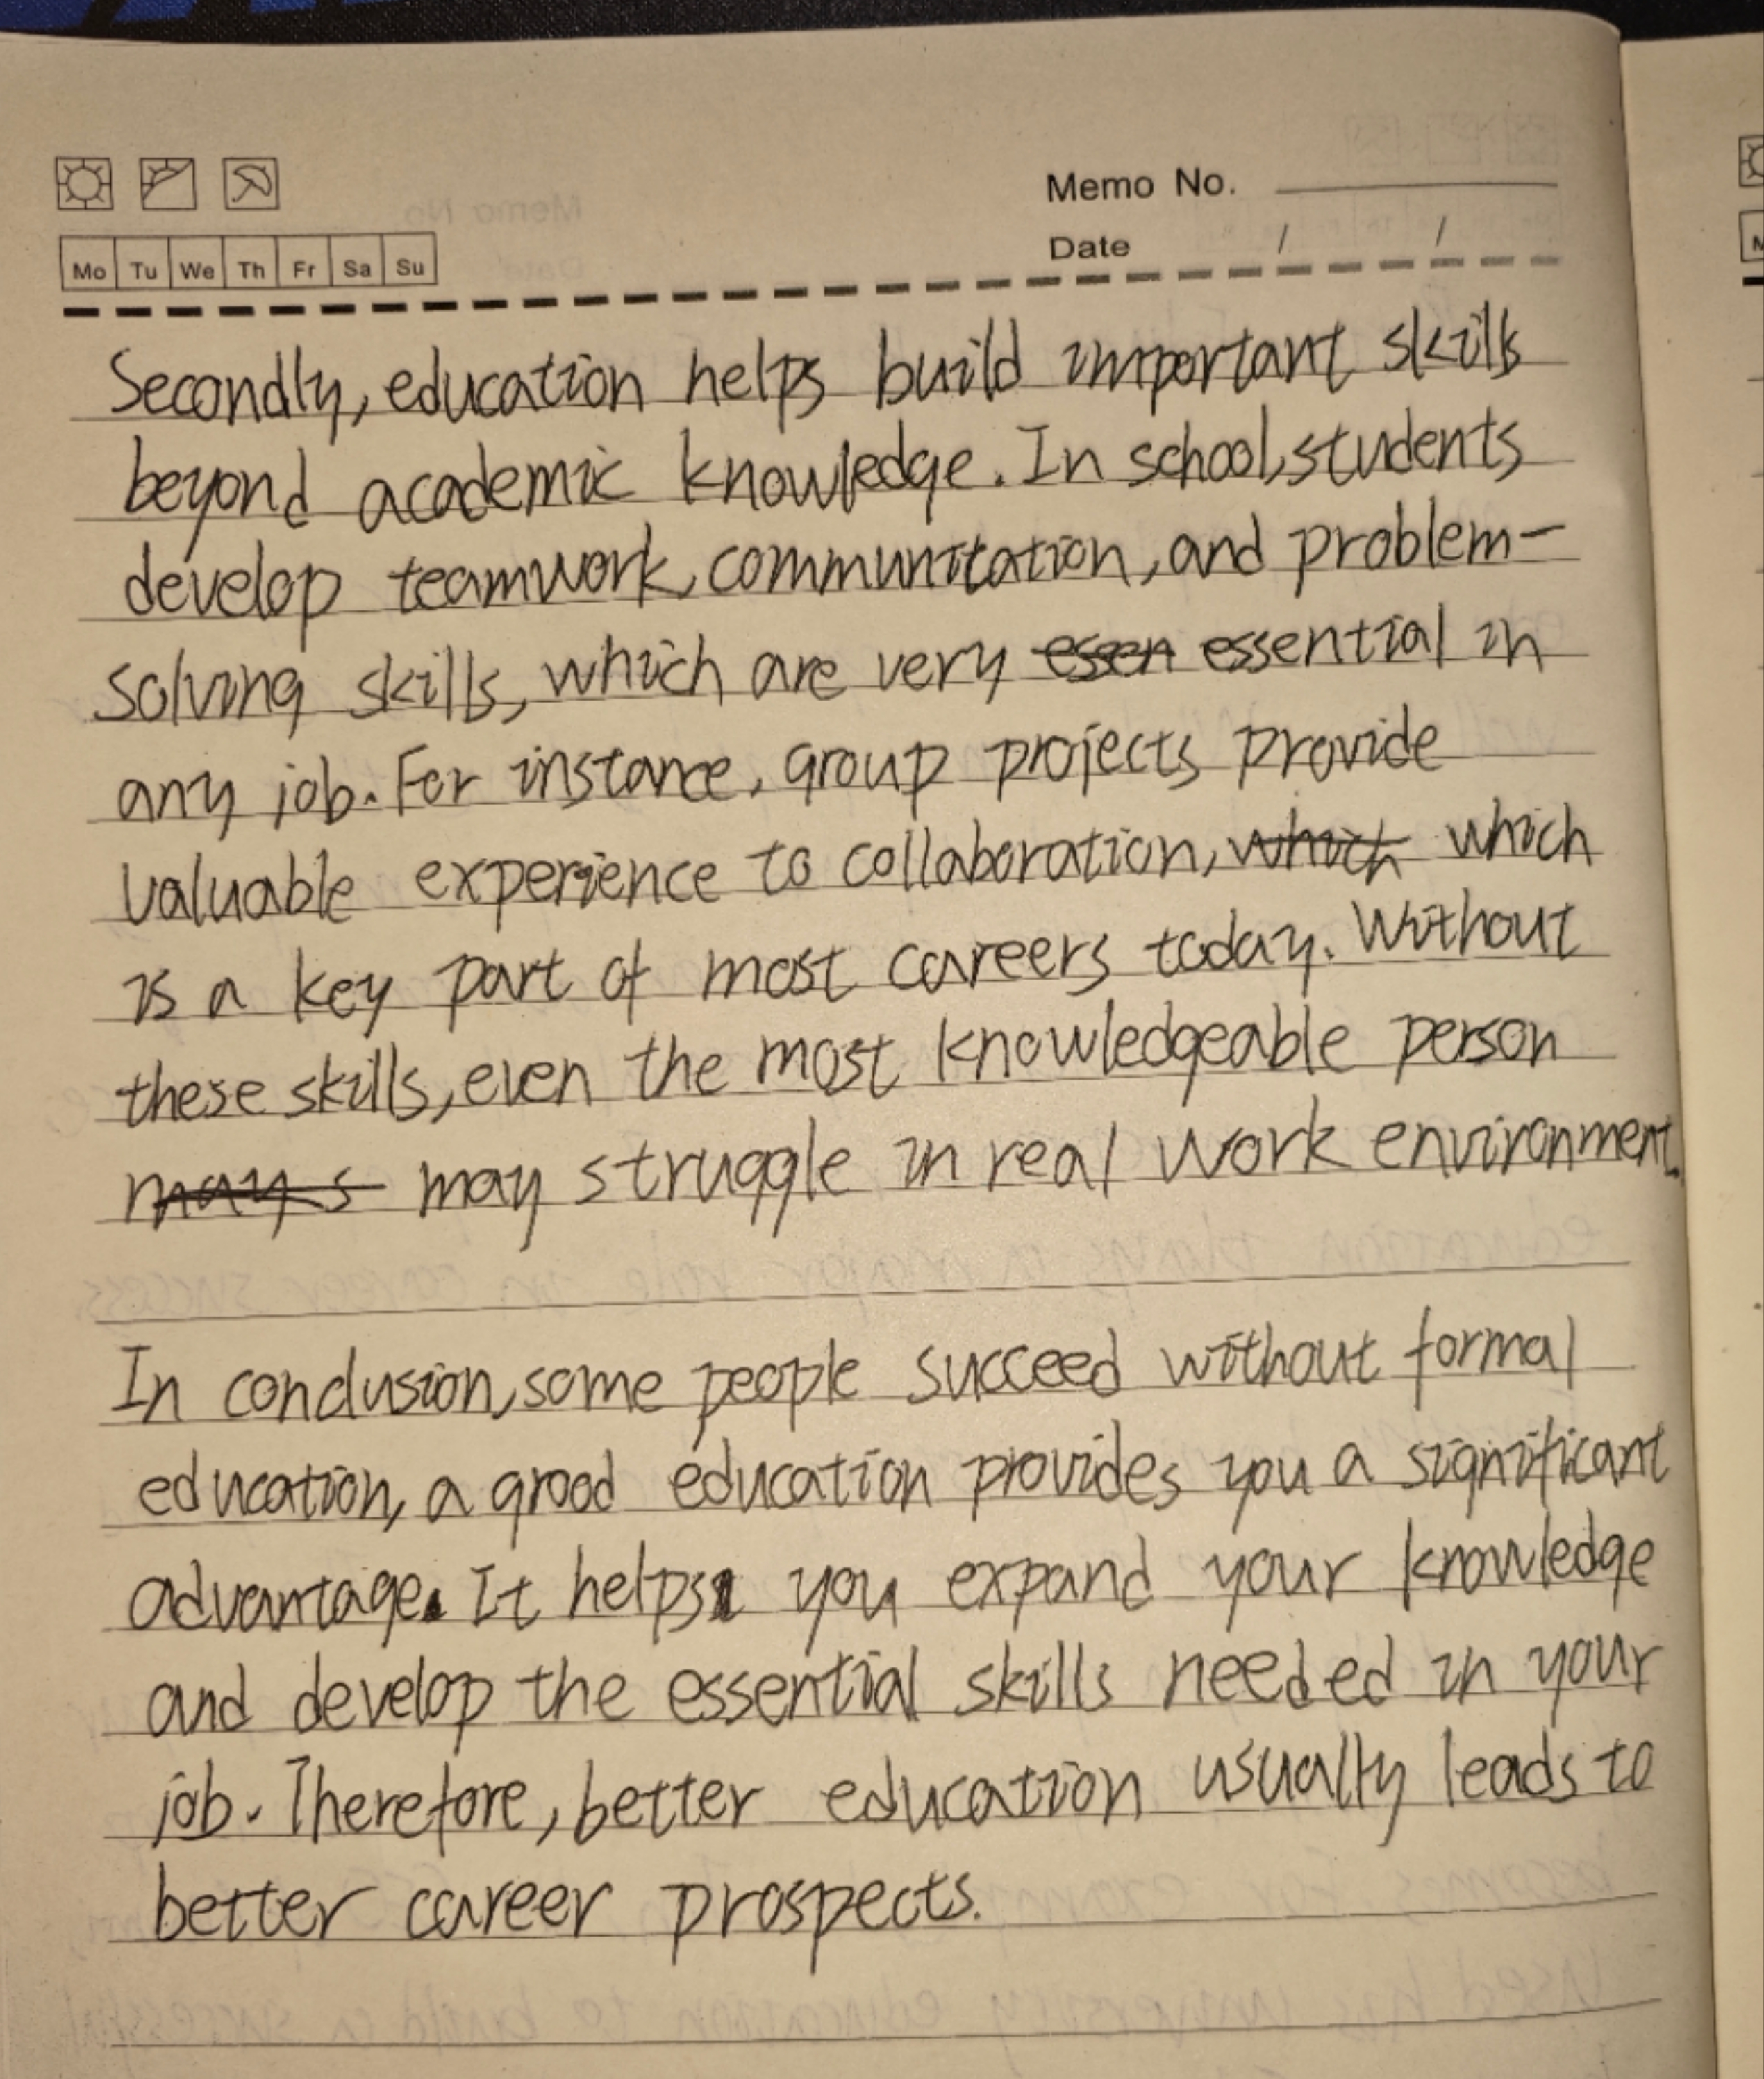 Memo No.
Date / /
Mo Tu We Th Fr Sa Su
Secondly, education helps build important skills
beyond academic knowledge. In school, students
develop teamwork, communitation, and problem-
solving skills, which are very essen essential in
any job. For instance, group projects provide
valuable experience to collaboration, which which
is a key part of most careers today. Without
these skills, even the most knowledgeable person
may s may struggle in real work environment.
In conclusion, some people succeed without formal
education, a good education provides you a significant
advantage. It helps you expand your knowledge
and develop the essential skills needed in your
job. Therefore, better education usually leads to
better career prospects.